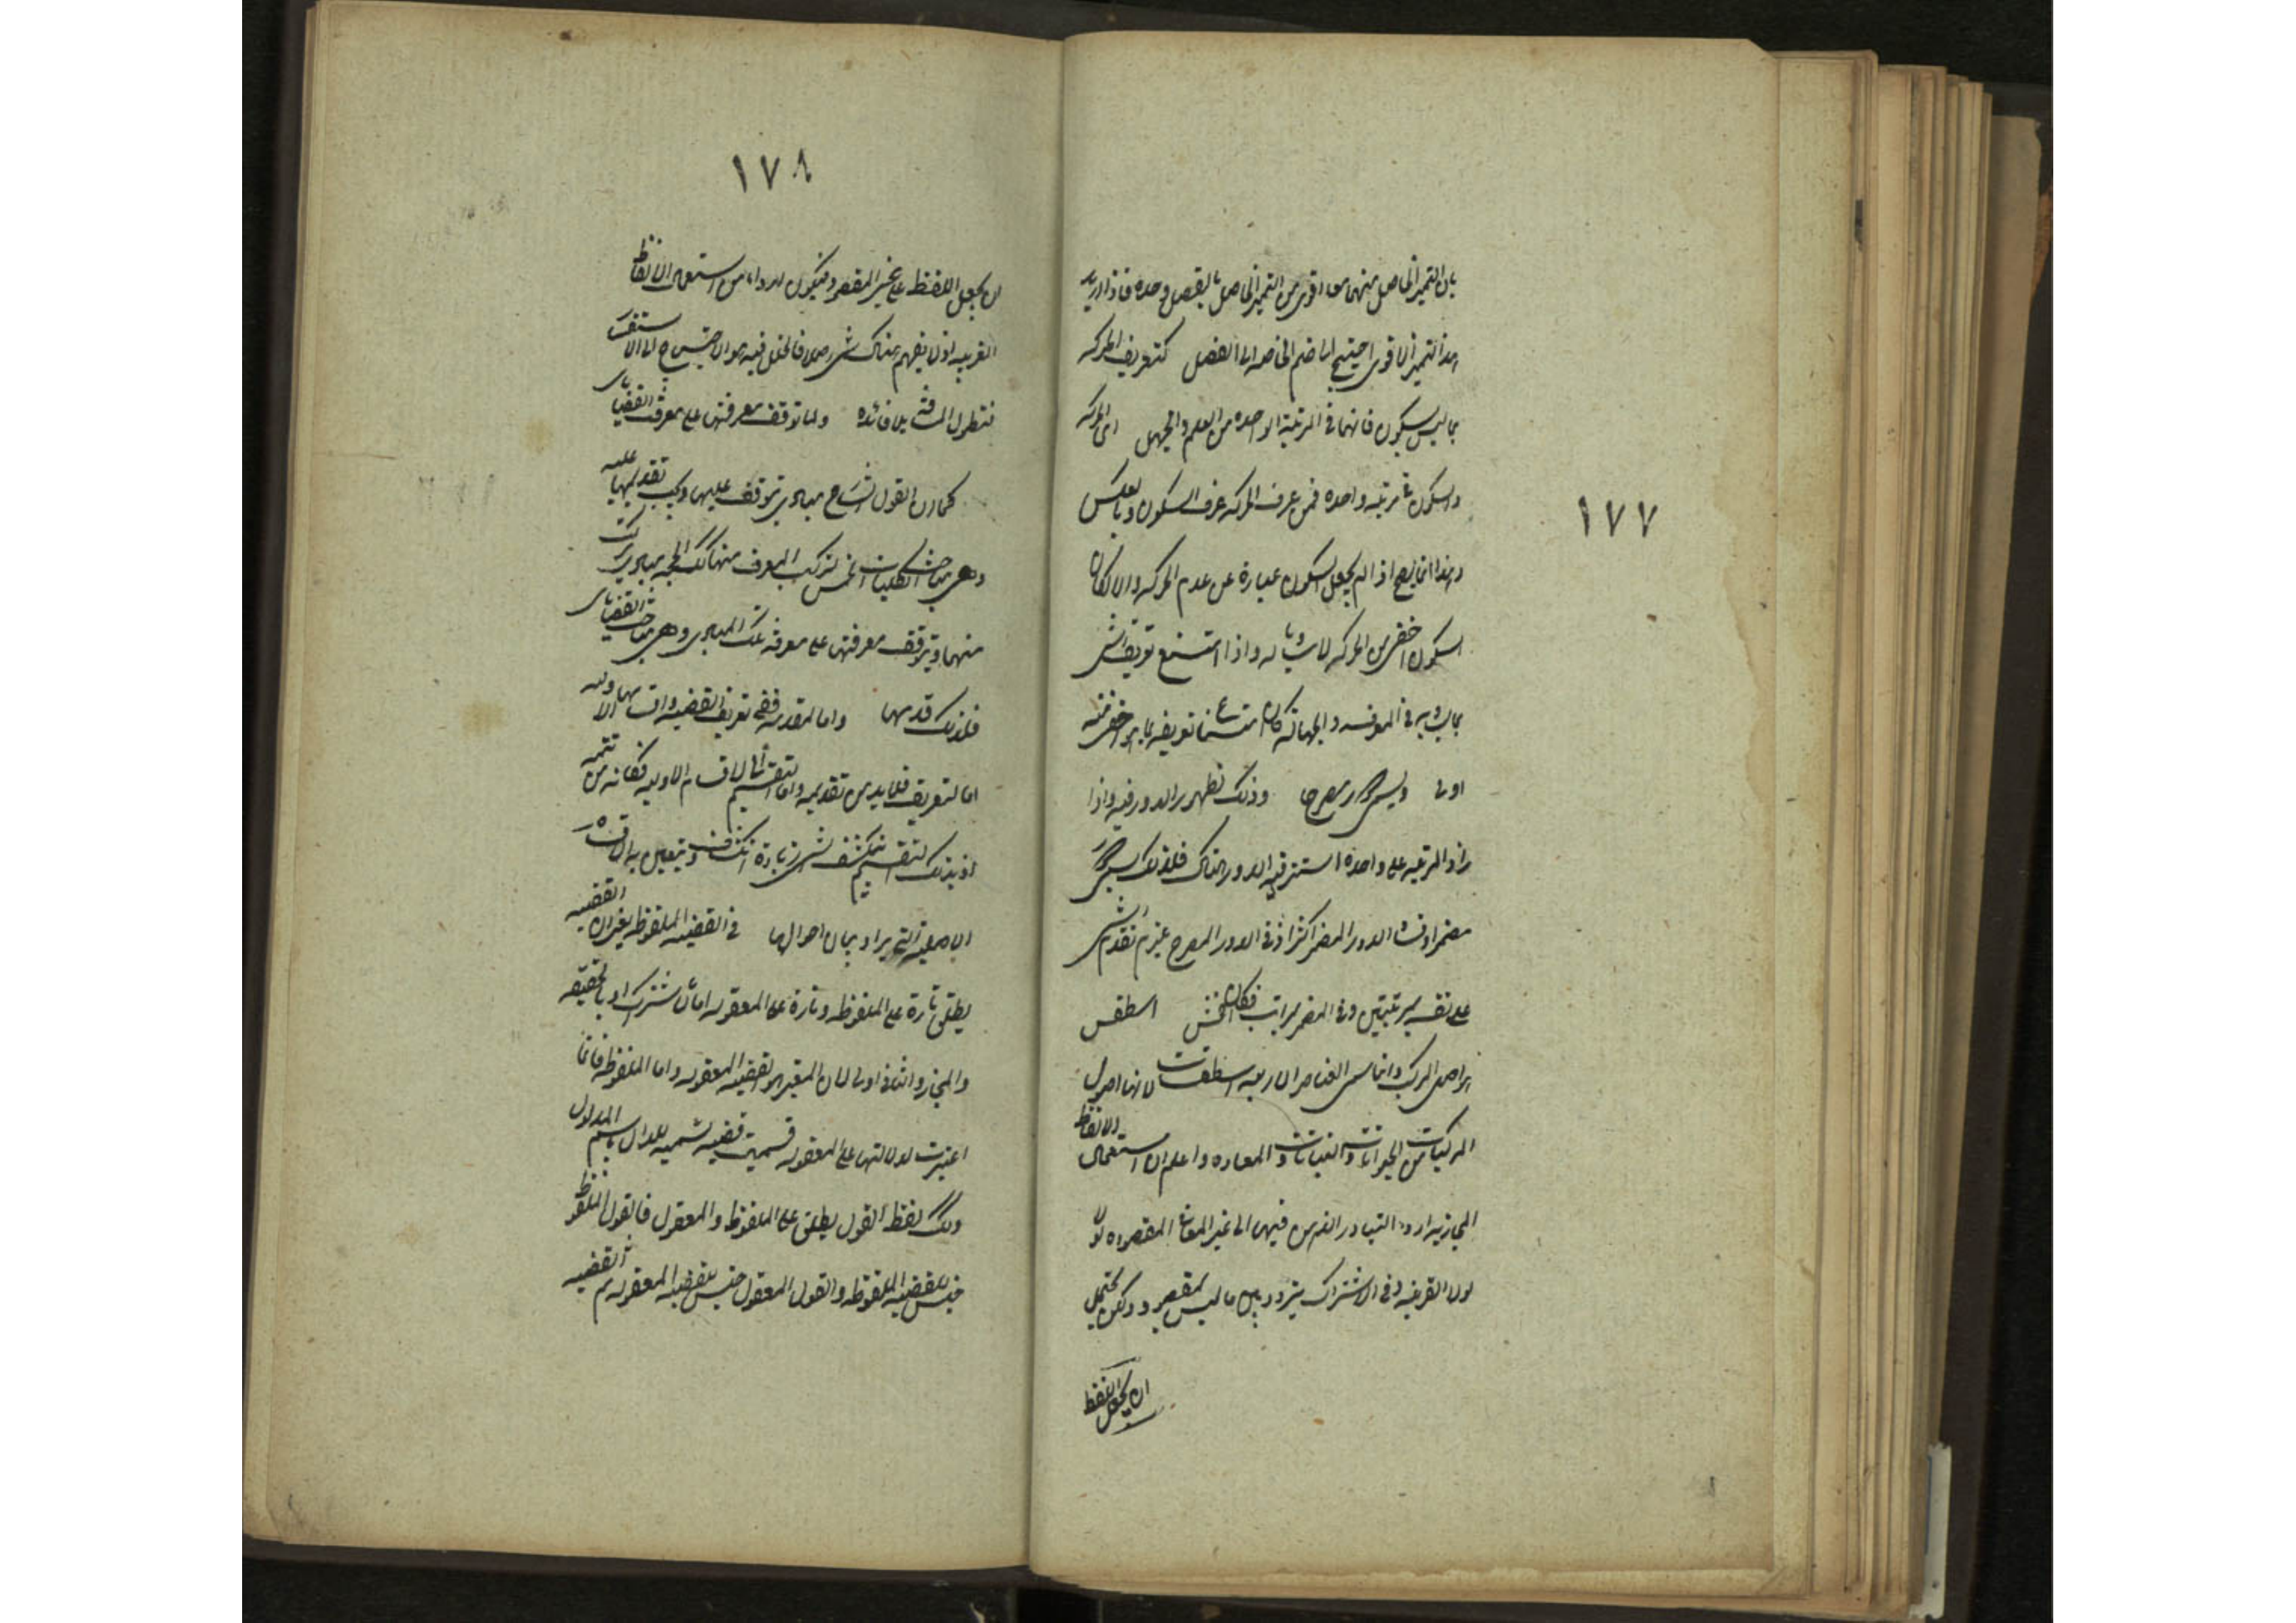 ١٧٧
بان التميز الحاصل منهما معا اقوى من التميز الحاصل بالفصل وحده فاذا اريد
هذا التميز الاقوى احتيج الى ضم الخاصه الى الفصل كتعريف الحركه
بما ليس بسكون فانهما فى المرتبة الواحده من العلم والجهل اى الحركه
والسكون فى مرتبه واحده فمن عرف الحركه عرف السكون وبالعكس
وهذا انما يصح اذا لم يجعل السكون عبارة عن عدم الحركه والا لكان
السكون اخفى من الحركه لا مساويا له واذا امتنع تعريف الشئ
بما يساويه فى المعرفه والجهاله كان امتناع تعريفه بما هو اخفى منه
اولى ويسمى دورا مصرحا وذلك لظهور الدور فيه واذا
زاد المرتبه على واحده استتر فيه الدور هناك فلذلك يسمى دورا
مضمرا وفساد الدور المضمر اكثر اذ فى الدور المصرح يلزم تقدم الشئ
على نفسه بمرتبتين وفى المضمر بمراتب فكان افحش اسطقس
هو اصل المركب وانما سمى العناصر الاربعه اسطقسات لانها اصول
المركبات من الحيوانات والنباتات والمعادن واعلم ان استعمال الالفاظ
المجازيه اردء التبادر الذهن فيها الى غير المعانى المقصوده لو
لولا القرينه وفى الاشتراك يتردد بين ما ليس بمقصود ولكن يحتمل
ان يحمل اللفظ
١٧٨
ان يحمل اللفظ على غير المقصود فيكون اردء من استعمال الالفاظ
الغريبه اذ لا يفهم هناك شئ اصلا فالخلل فيه هو الاحتياج الى الاستفسار
فتطول المسافة بلا فائده ولما توقف معرفتها على معرفة القضايا
كما ان القول الشارح مبادى يتوقف عليها ويجب تقديمها عليه
وهى مباحث الكليات الخمس لتركب المعرف منها كذلك للحجه مبادى يتركب
منها ويتوقف معرفتها على معرفة تلك المبادى وهى مباحث القضايا
فلذلك قدمها واما المقدمه ففى تعريف القضيه واقسامها الاوليه
اما لتعريف فلا بد من تقديمه واما التقسيم الى الاقسام الاوليه فكانه من تتمه
اذ بذلك التقسيم ينكشف الشئ زيادة انكشاف ويتعين به اقسامه
الاصليه التى يراد بيان احوالها فى القضيه الملفوظه يعنى ان القضيه
يطلق تارة على الملفوظه وتارة على المعقوله اما بالاشتراك او بالحقيقه
والمجاز والثانى اولى لان المعتبر هو القضيه المعقوله واما الملفوظه فانما
اعتبرت لدلالتها على المعقوله فسميت قضيه تسميه للدال باسم المدلول
وكذلك لفظ القول يطلق على الملفوظ والمعقول فالقول الملفوظ
جنس للقضيه الملفوظه والقول المعقول جنس للقضيه المعقوله ثم القضيه